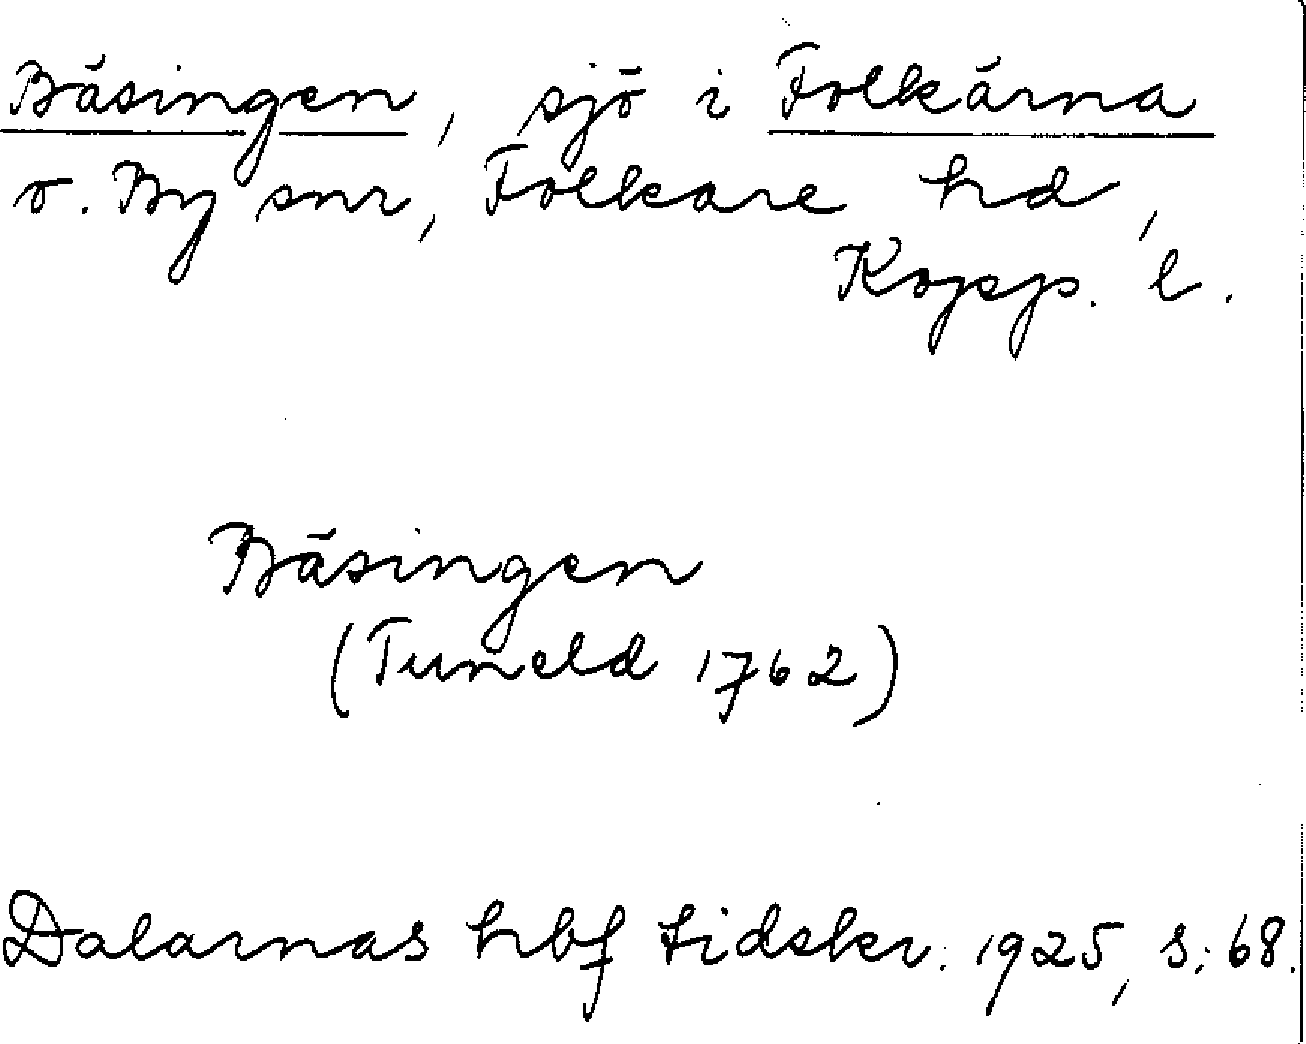 Bäsingen, sjö i Folkärna
o. By snr, Folkare hd,
Kopp. l.
Bäsingen
(Tuneld 1762)
Dalarnas hbf tidskr. 1925, s. 68.